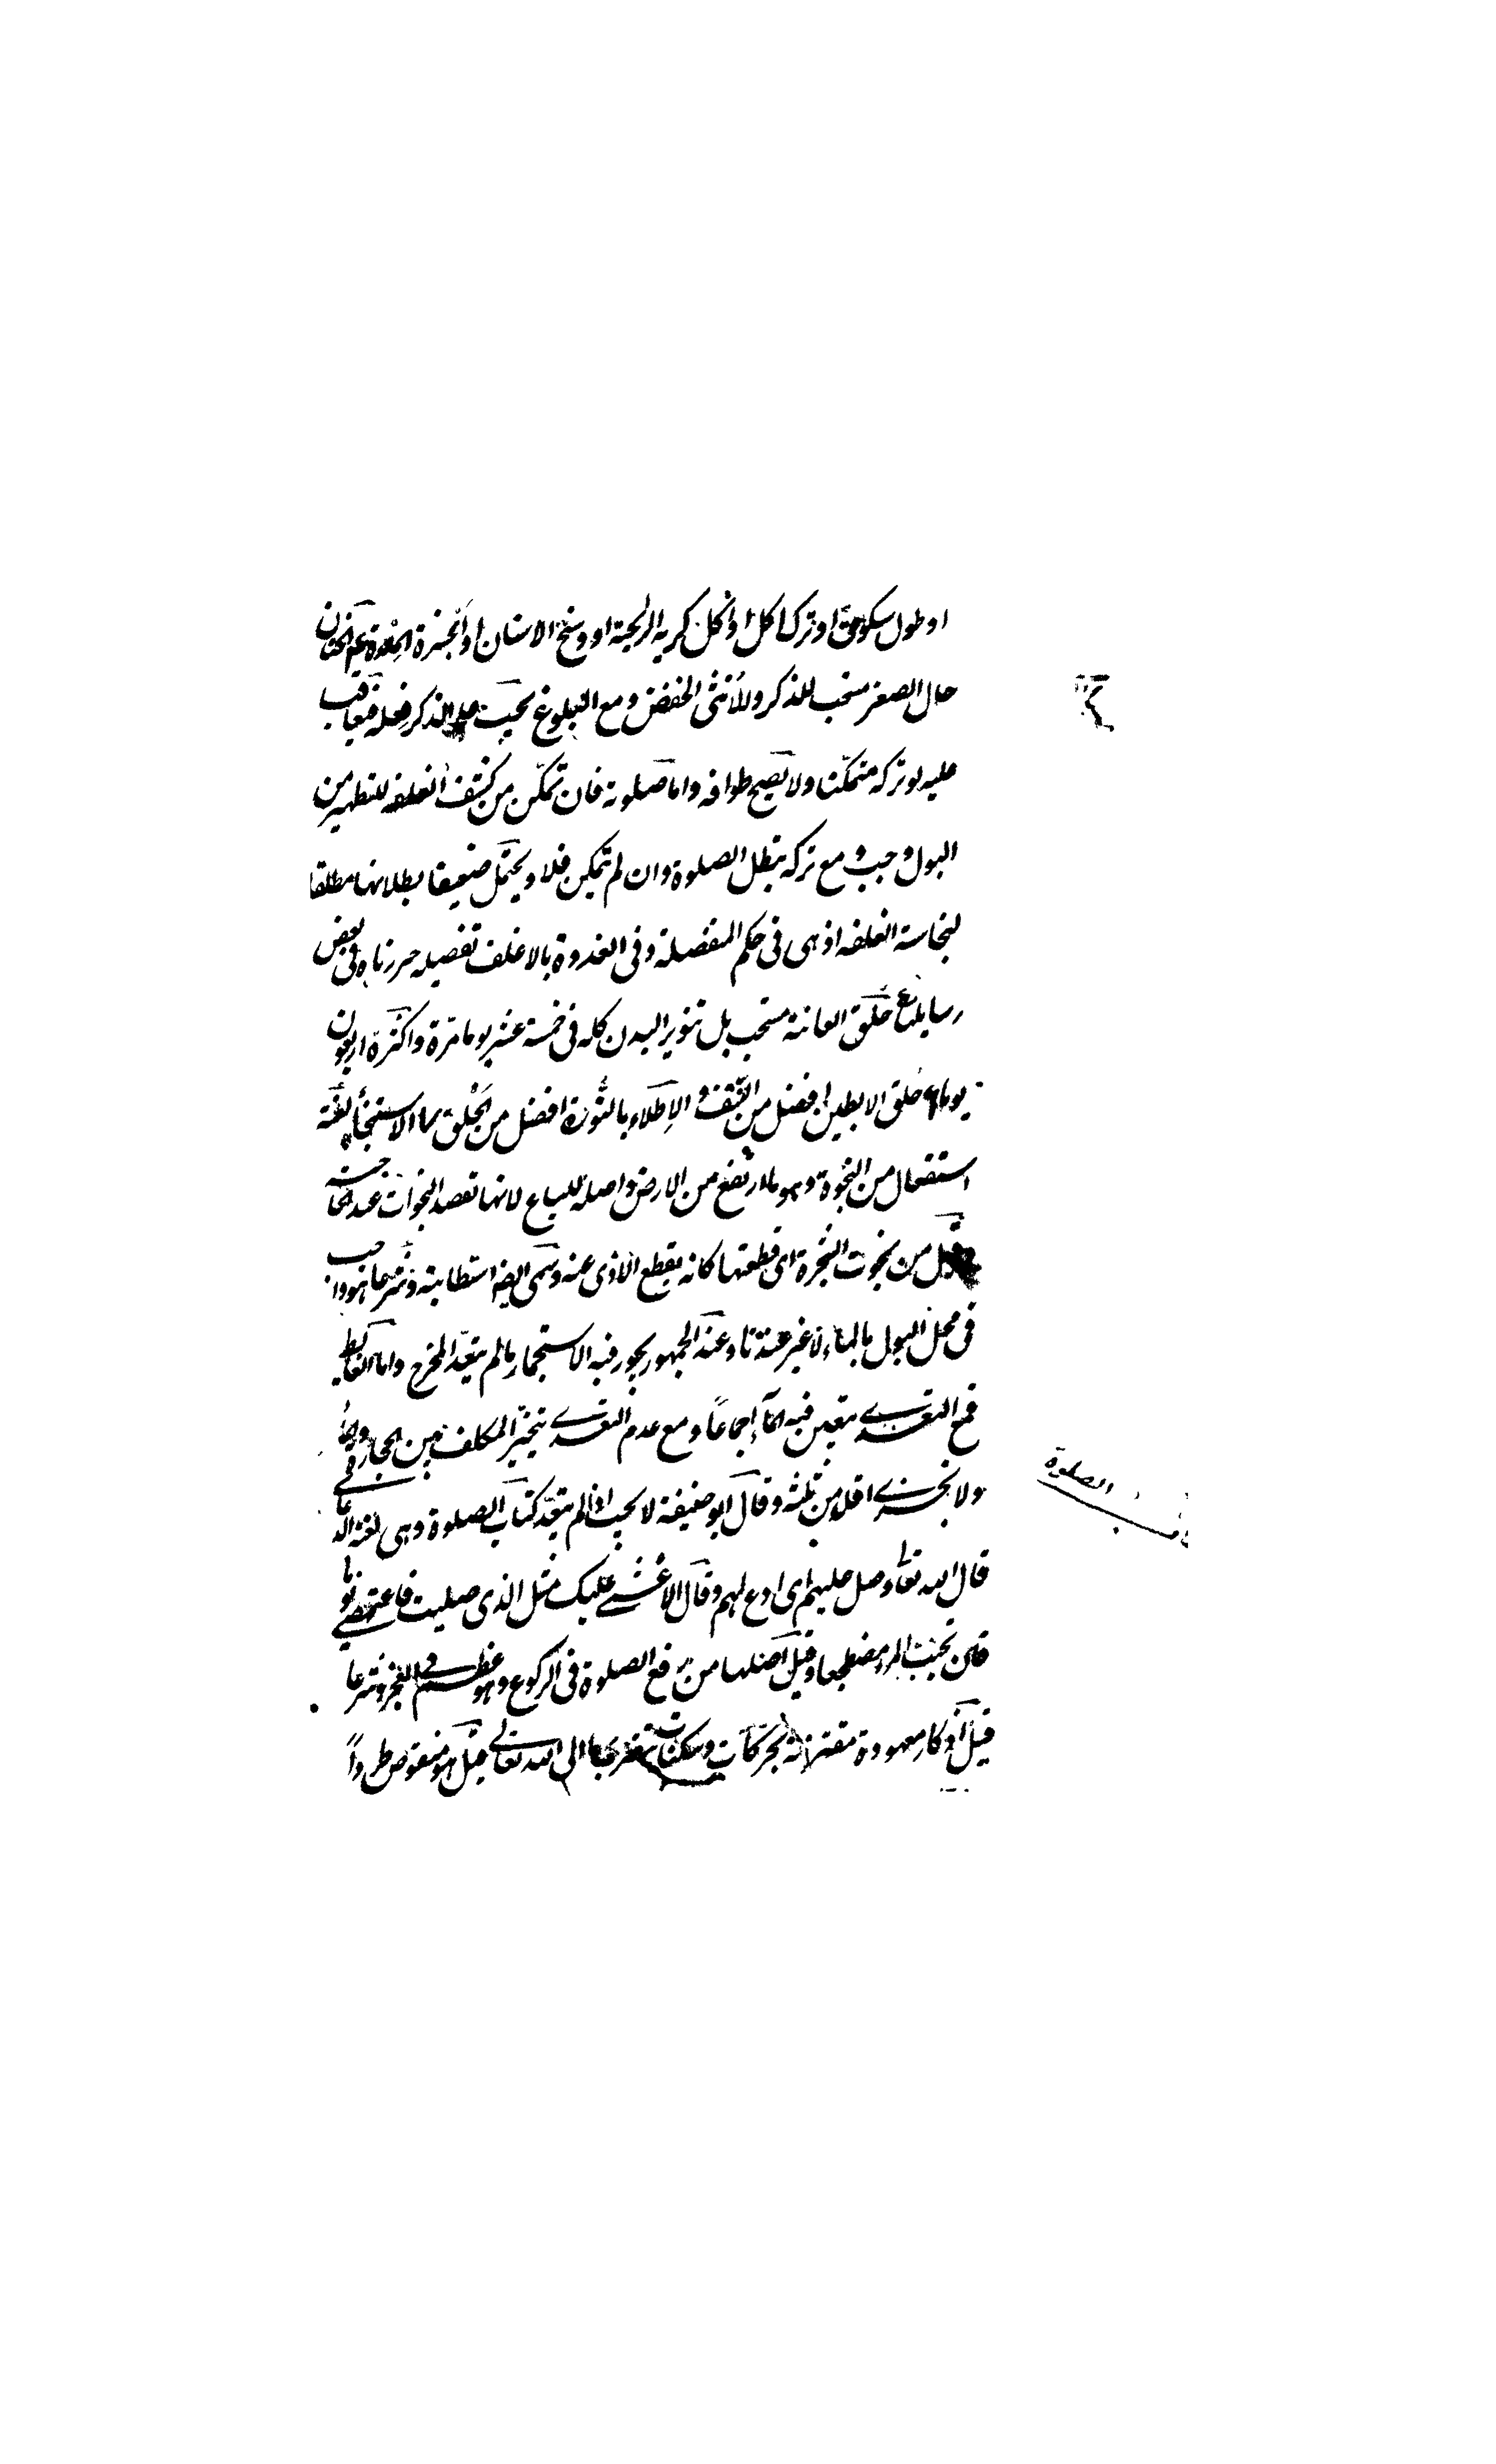 او طول سكوت او ترك اكل او اكل كريه الريحة او وسخ الاسنان او
حال الصغر مستحب للذكر وللأنثى الخفض ومع البلوغ يجب على الذكر فعله فيعاقب
عليه لو تركه متمكّنا ولا يصح طوافه واما صلوته فان تمكّن من كشف الغلفه للتطهير من
البول وجب ومع تركه تبطل الصلوة وان لم يتمكن فلا ويحتمل ضعيفا بطلانها مطلقا
لنجاسة الغلفه اذ هى فى حكم المنفصلة وفى القدوة بالاغلف تفصيل حررناه فى بعض
رسايلنا حلق العانة مستحب بل تنوير البدن كله فى خمسة عشر يوما مرّة واكثره اربعون
يوما حلق الابطين افضل من النتف و الاطلاء بالنّورة افضل من الحلق الاستنجأ لغة
استفعال من النجوة وهو ما ارتفع من الارض واصله للسباع لانها تقصد النجوات عند الحاجة
وقيل من نجوت الشجرة اى قطعتها كانه يقطع الاذى عنه وسمى ايضا استطابة وشرعا هو واجب
فى محل البول بالماء لا غير عندنا وعند الجمهور يجوز فيه الاستجمار ما لم يتعدّ المخرج واما الغايط
فمع التعدى يتعين فيه المآء إجماعًا ومع عدم التعدى يتخيّر المكلف بين الحجارة والمأ
ولا يجزى اقل من ثلثة وقال ابو حنيفة لا يجب اذا لم يتعدّ كتاب الصلوة وهى لغة الدعا
قال الله تعالى وصل عليهم اى ادع لهم وقال الاعشى عليك مثل الذى صليت فاغتمضى نوما
فان لجنب المرء مضطجعا وقيل اصلها من رفع الصلوة فى الركوع وهو عظم فى العجز وشرعا
قيل اذكار معهودة مقترنة بحركات وسكنات يتقرب بها الى الله تعالى قيل هو منقوض طردًا
الصلوة